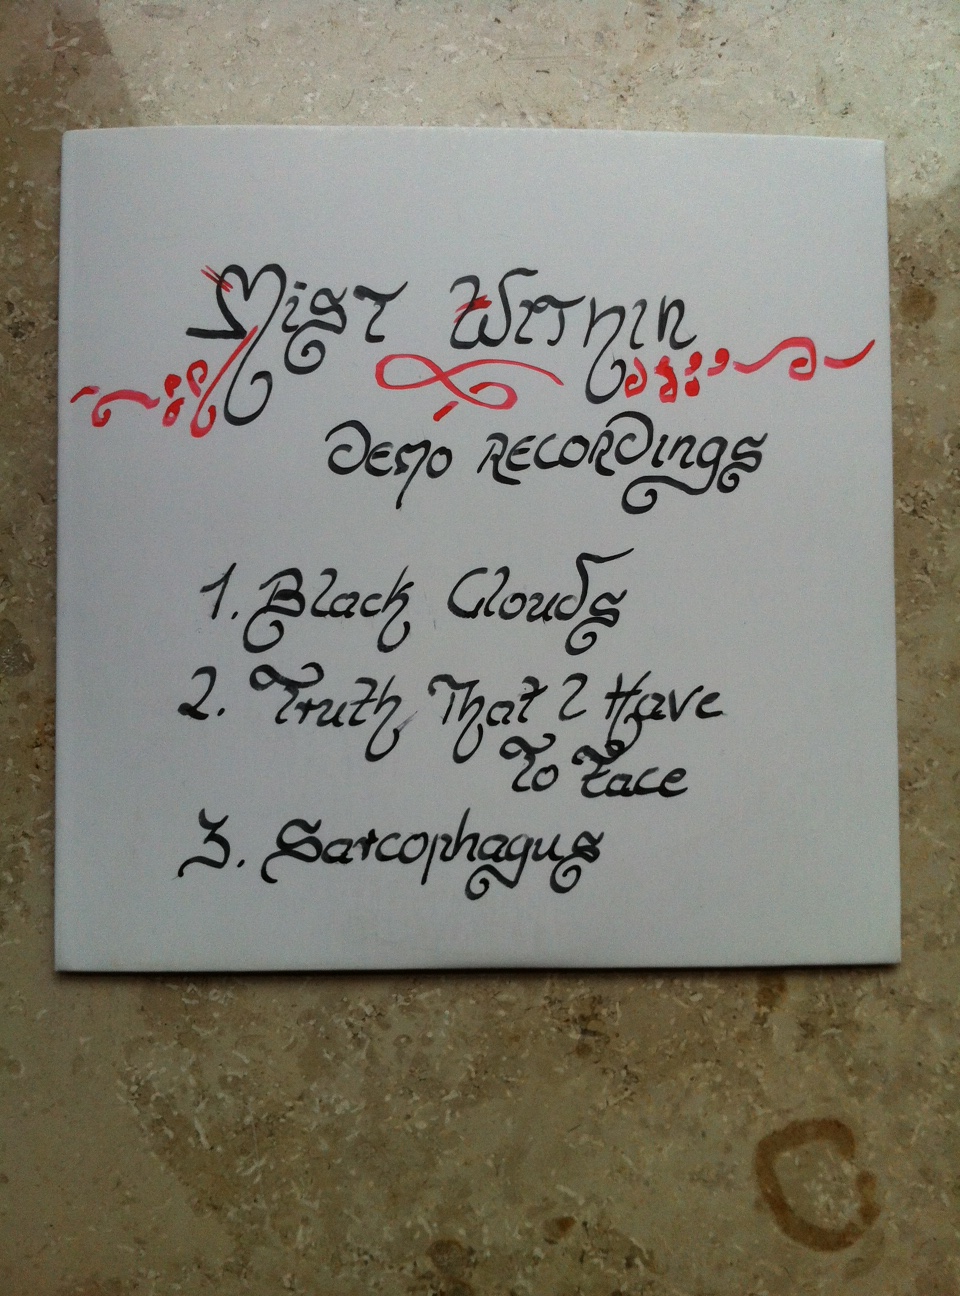 Mist Within
Demo Recordings
1. Black Clouds
2. Truth That I Have
To Face
3. Sarcophagus